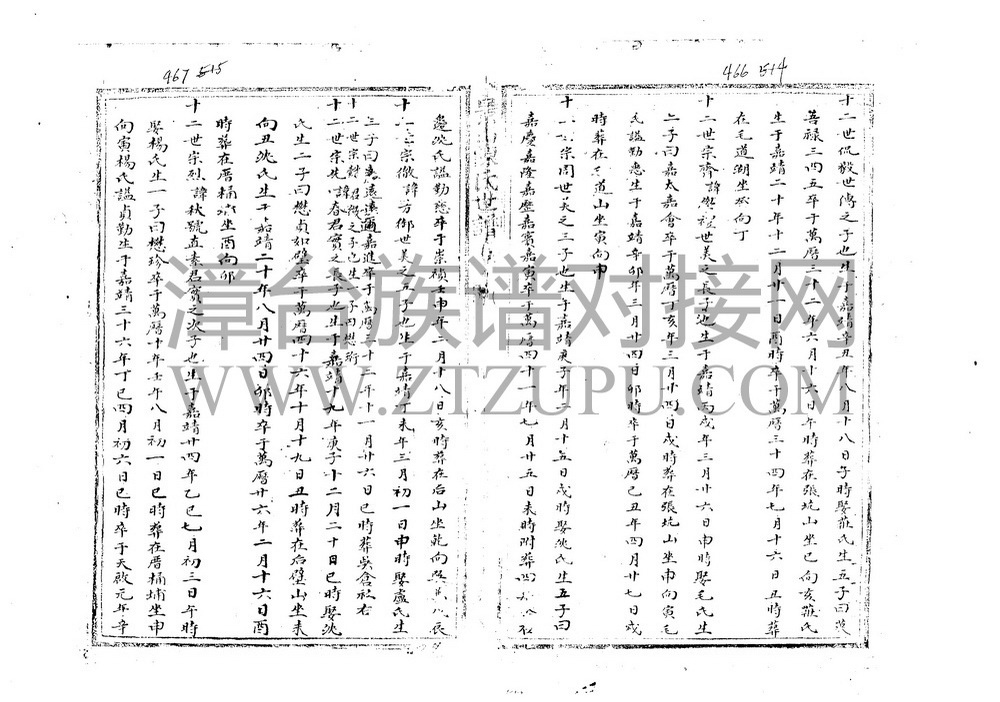 466 514
十二世侃毅世傳之子也生于嘉靖辛丑年八月十八日子時娶莊氏生五子曰
善祿三四五卒于萬曆三十二年六月十六日午時葬在張坑山坐巳向亥莊氏
生于嘉靖二十年十二月廿一日酉時卒于萬曆三十四年七月十六日丑時葬
在毛道湖坐向丁
十二世宗齊諱學禮世美之長子也生于嘉靖丙戌年三月廿六日申時娶毛氏生
二子曰嘉太嘉會卒于萬曆丁亥年三月廿四日戌時葬在張坑山坐申向寅毛
氏謚勤惠生于嘉靖辛卯年三月廿四日卯時卒于萬曆己丑年四月廿七日戌
時葬在道山坐寅向申
十宗周世美之三子也生于嘉靖庚子年二月十五日戌時娶沈氏生五子曰
嘉慶嘉隆嘉歷嘉賓嘉寅卒于萬曆四十一年七月廿五日未時附葬四
氏世譜
467 515
邊沈氏謚勤慈卒于崇禎壬申年二月十八日亥時葬在后山坐乾向
十宗徹諱方御世美之子也生于嘉靖丁未年三月初一日申時娶盧氏生
三子曰嘉進卒于萬曆三十三年十一月廿六日巳時葬吳倉崧右
十二世宗之子也生子曰懋衍
十二世宗諱春君實之長子也生于嘉靖十九年庚子十二月二十日巳時娶沈
氏生二子曰懋貞如璧卒于萬曆四十六年十月十九日丑時葬在后壁山坐未
向丑沈氏生于嘉靖二十年八月廿四日卯時卒于萬曆廿六年二月十六日酉
時葬在厝桶坐酉向卯
十二世宗烈諱秋號直素君實之次子也生于嘉靖廿四年乙巳七月初三日午時
娶楊氏生一子曰懋珍卒于萬曆十年壬午八月初一日巳時葬在厝桶埔坐申
向寅楊氏謚貞勤生于嘉靖三十六年丁巳四月初六日巳時卒于天啟元年辛
漳台族谱对接网
WWW.ZTZUPU.COM